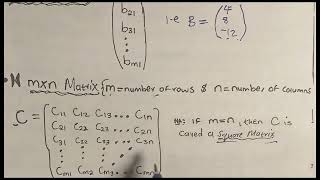 b21
b31
bm1
i-e B = (4
8
-12)
mxn Matrix {m=number of rows & n=number of columns
C = (C11 C12 C13 ... C1n
C21 C22 C23 ... C2n
C31 C32 C33 ... C3n
Cm1 Cm2 Cm3 ... Cmn)
If m=n, then C is
called a Square Matrix